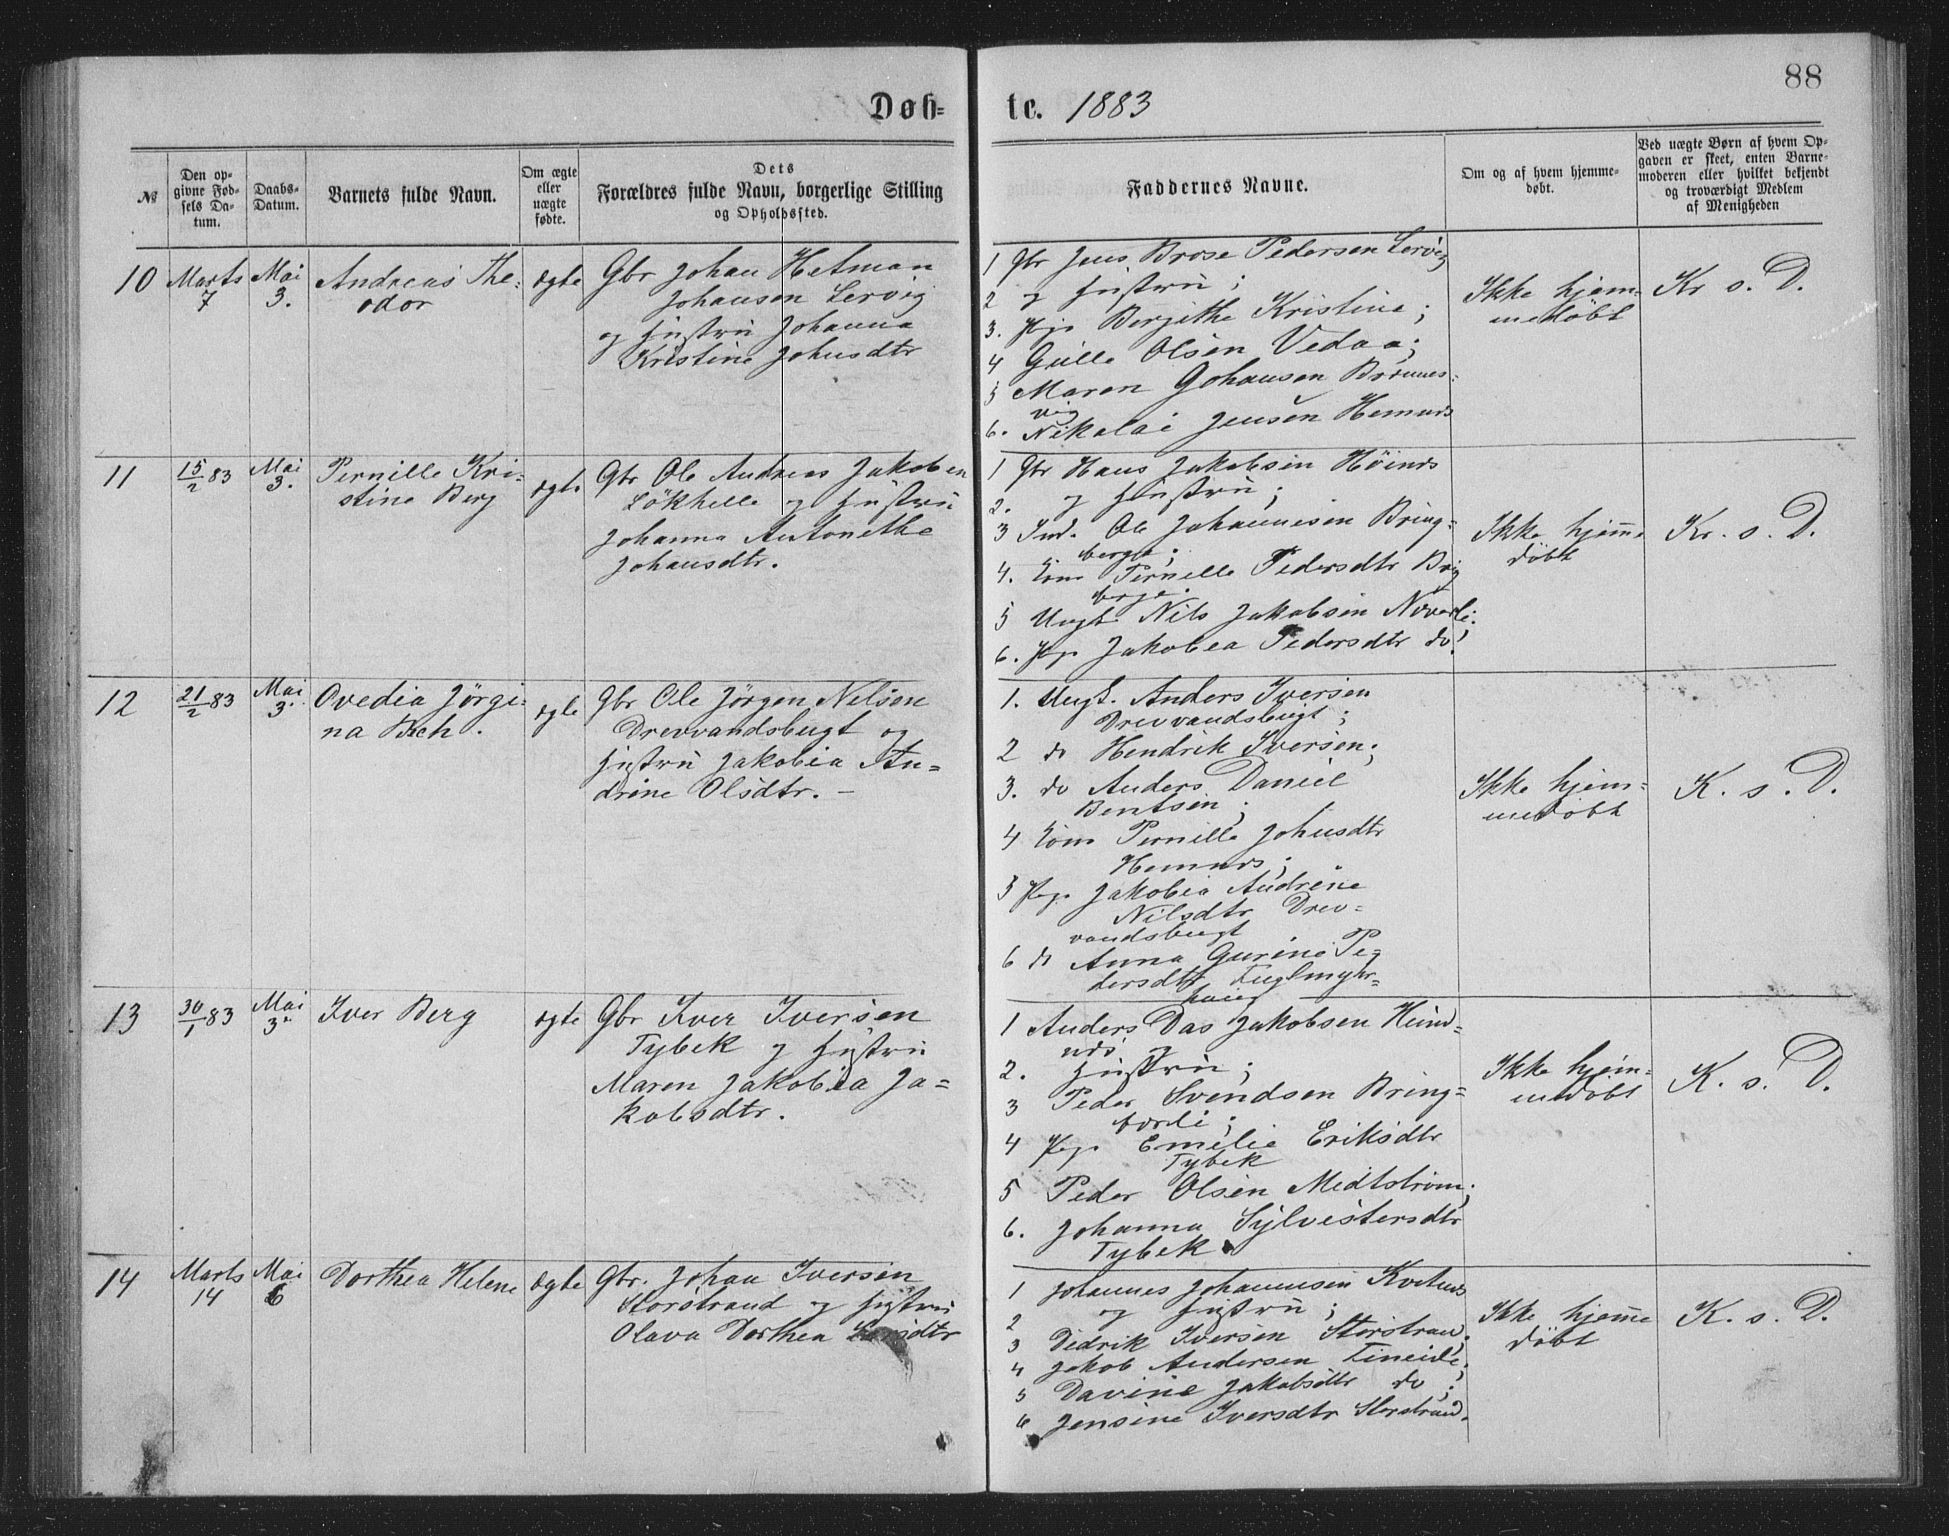 88
Døb-
te. 1883
№
Den op-
givne Fød-
sels Da-
tum.
Daabs-
Datum.
Barnets fulde Navn.
Om ægte
eller
uægte
fødte.
Dets
Forældres fulde Navn, borgerlige Stilling
og Opholdssted.
Faddernes Navne.
Om og af hvem hjemme-
døbt.
Ved uægte Børn af hvem Op-
gaven er skeet, enten Barne-
moderen eller hvilket bekjendt
og troværdigt Medlem
af Menigheden
10
Marts
7
Mai
3.
Andreas The-
odor
ægte
Gbr Johan Hetman
Johansen Lervig
og Hustru Johanna
Kristine Johnsdtr
1 Gbr Jens Brose Pedersen Lervig
2 og Hustru ;
3. Kristine ;
4 Olsen Vedaa ;
5 Maren Johansen
vig
6. Nikolai Jensen Hemnes
Ikke hjem-
medøbt
Kr s. D.
11
15/2 83
Mai
3.
Pernille Kri-
stine Berg
ægte
Gbr Ole Andreas Jakobsen
Lökhelle og Hustru
Johanna Antonethe
Johansdtr.
1 Gbr Hans Jakobsen
2. og Hustru ;
3 Ole Johannesen Bring-
4. Pernille Pedersdtr
5 Ungk. Nils Jakobsen
6. Pige Jakobea Pedersdtr do.
Ikke hjemme
døbt
Kr. s. D.
12
21/2 83
Mai
3.
Ovedia Jörgi-
na Bech.
ægte
Gbr Ole Jörgen Nelsen
Drevvandsbugt og
Hustru Jakobia An-
drine Olsdtr. -
1. Ungk. Anders Iversen
Drevvandsbugt ;
2 do Hendrik Iversen ;
3. do Anders Daniel
Bentsen ;
4 Pernille Johnsdtr
Hemnes ;
5 Pige Jakobia Andrine
Nilsdtr Drev-
vandsbugt
6 do Anna Gurine Pe-
dersdtr
Ikke hjem-
medøbt
K. s. D.
13
30/1 83
Mai
3.
Iver Berg
ægte
Gbr Iver Iversen
Tybek og Hustru
Maren Jakobea Ja-
kobsdtr.
1 Anders Das Jakobsen
2. Hustru ;
3 Peder Svendsen Bring-
4 Pige Emelie Eriksdtr
Tybek
5 Peder Olsen Midtström ;
6. Johanna Sylvestersdtr
Tybek
Ikke hjem-
medøbt
K. s. D.
14
Marts
14
Mai
6
Dorthea Helene
ægte
Gbr. Johan Iversen
Storstrand og Hustru
Olava Dorthea Larsdtr
1 Johannes Johannesen
2 og Hustru ;
3 Didrik Iversen Storstrand.
4 Jakob Andersen Fineide.
5 Davine Jakobsdtr do ;
6 Jensine Iversdtr Storstrand.
Ikke hjemme
døbt
K. s. D.